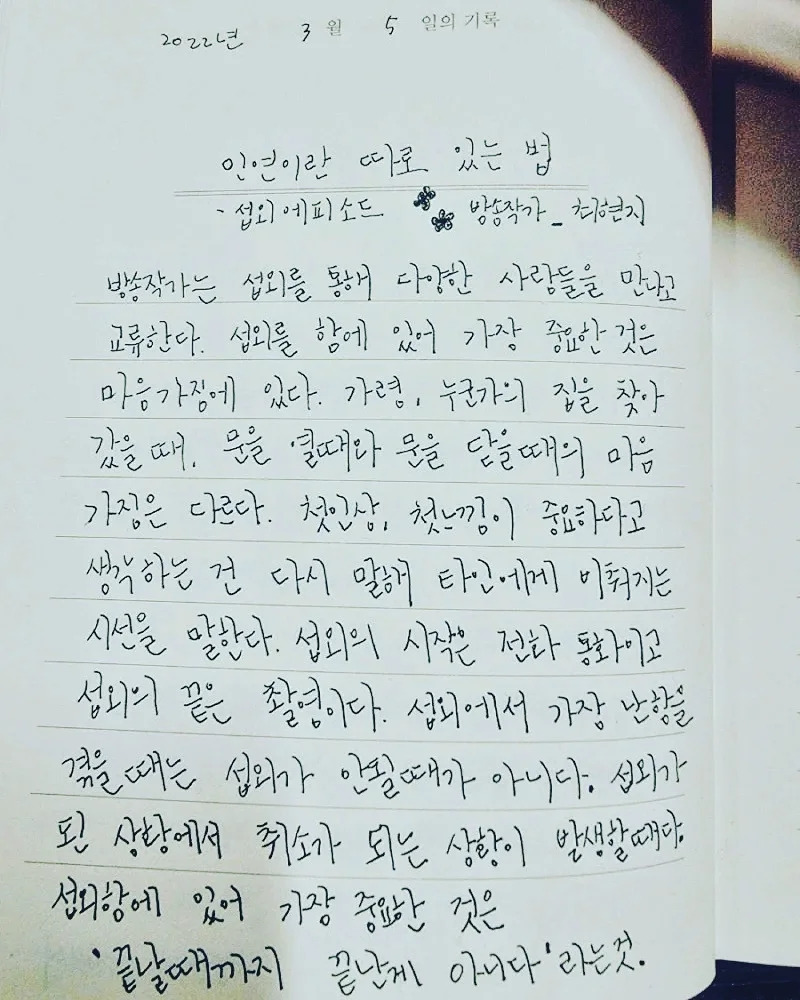 2022년 3월 5일의 기록
인연이란 따로 있는 법
- 섭외에피소드 방송작가_최현지
방송작가는 섭외를 통해 다양한 사람들을 만나고
교류한다. 섭외를 함에 있어 가장 중요한 것은
마음가짐에 있다. 가령, 누군가의 집을 찾아
갔을 때, 문을 열때와 문을 닫을때의 마음
가짐은 다르다. 첫인상, 첫느낌이 중요하다고
생각하는 건 다시 말해 타인에게 비춰지는
시선을 말한다. 섭외의 시작은 전화 통화이고
섭외의 끝은 촬영이다. 섭외에서 가장 난항을
겪을때는 섭외가 안될때가 아니다. 섭외가
된 상황에서 취소가 되는 상황이 발생할때다.
섭외함에 있어 가장 중요한 것은
'끝날때까지 끝난게 아니다'라는것.